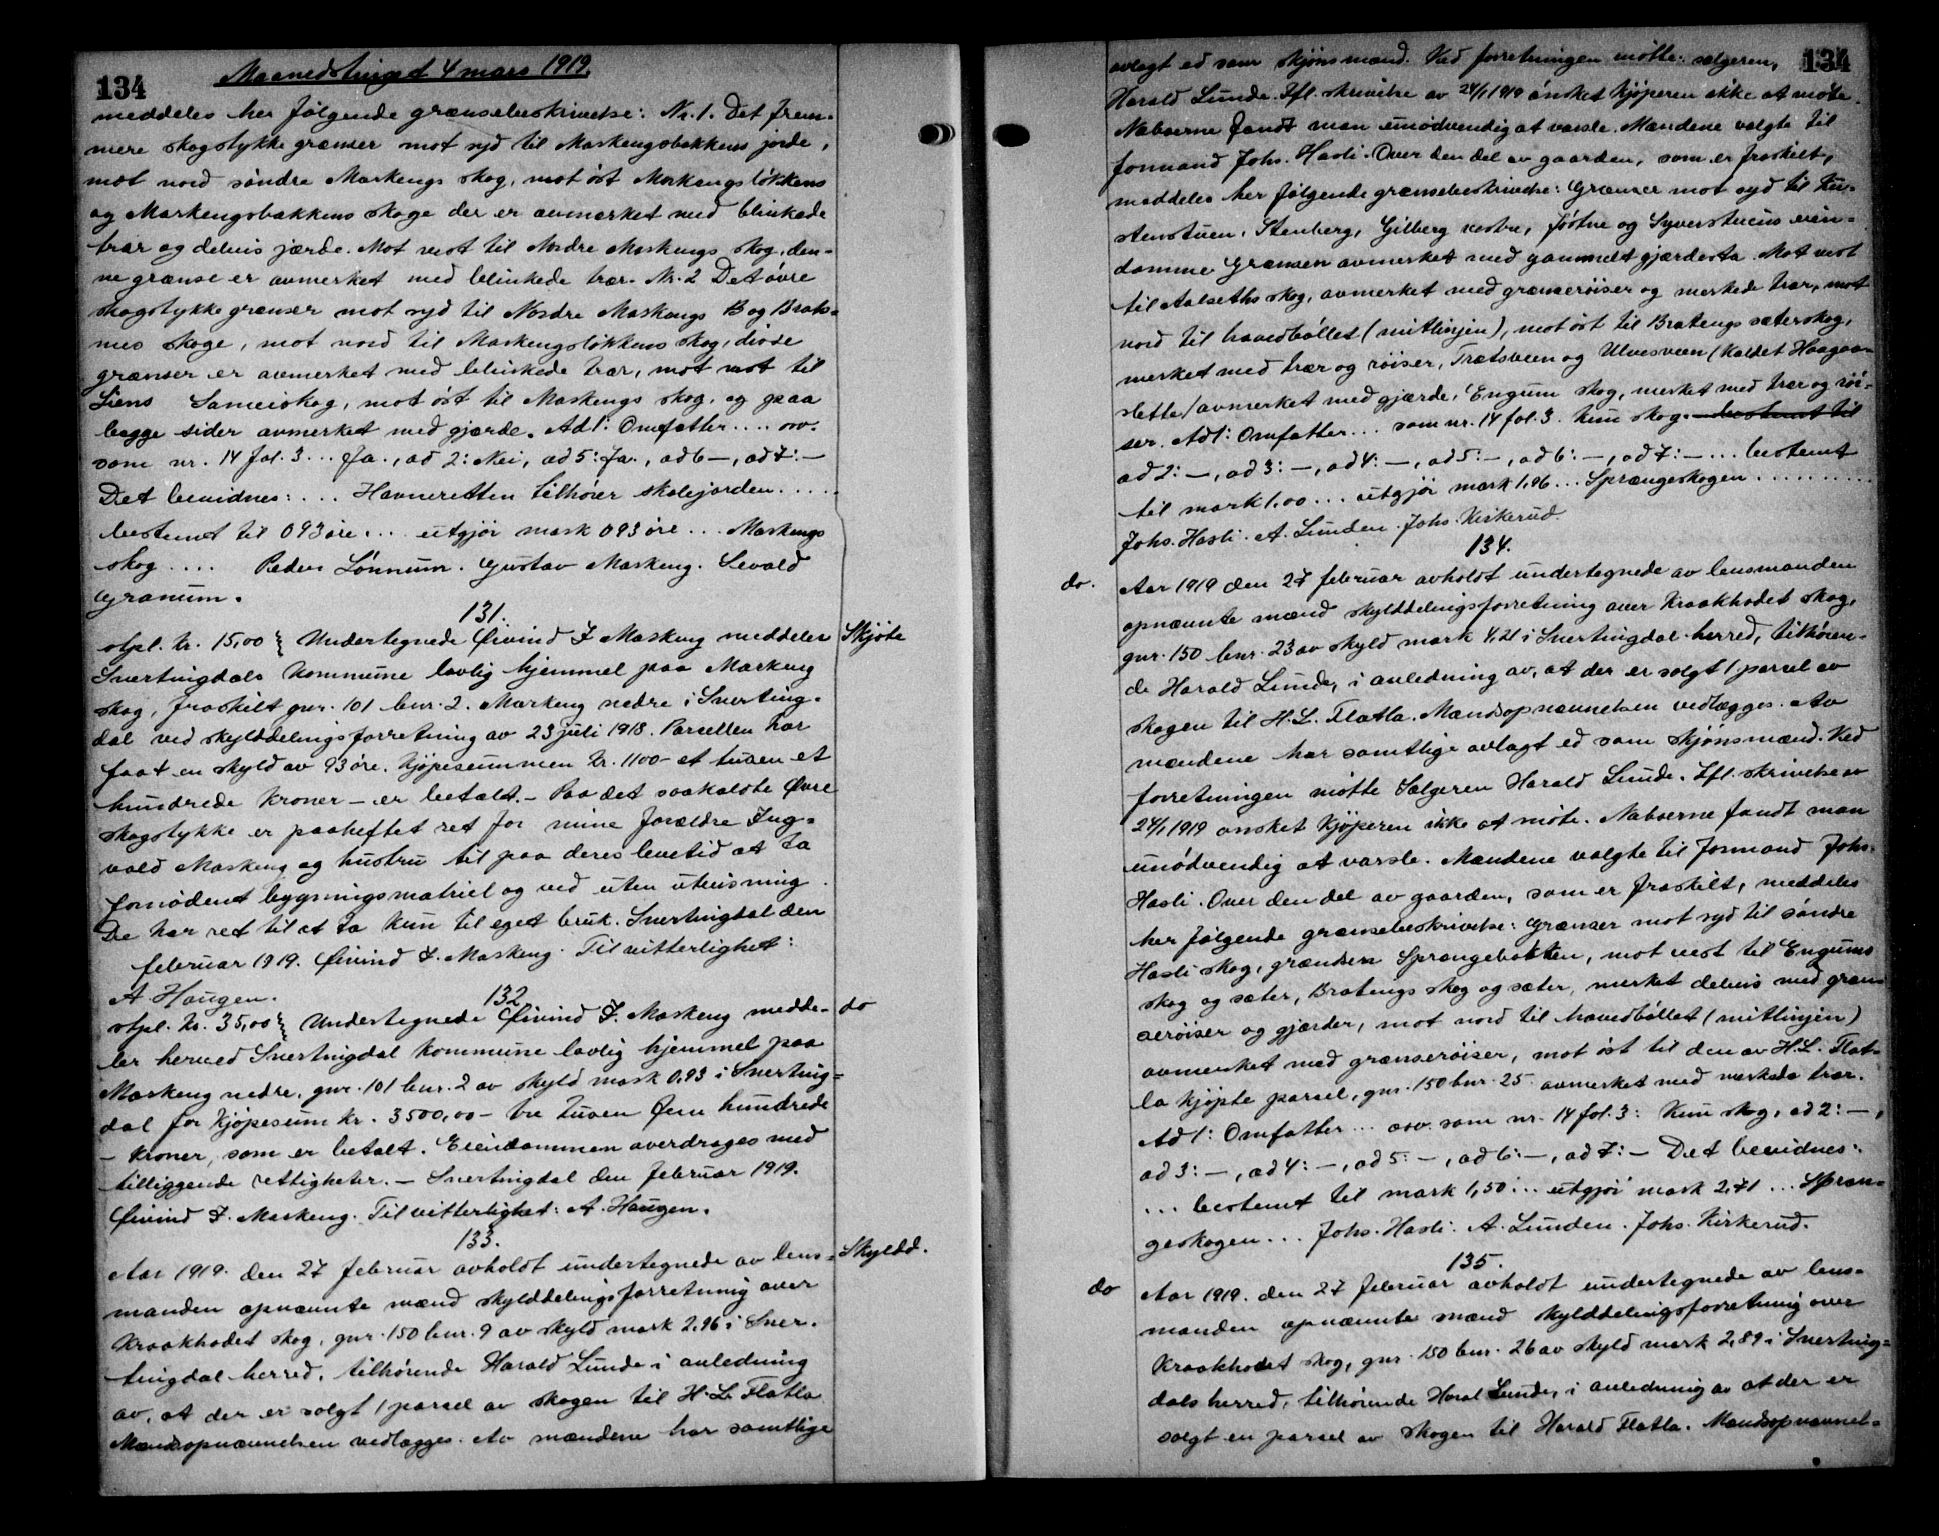 134
Maanedstinget 4 mars 1919.
meddeles her følgende grænsebeskrivelse: Nr. 1. Det frem-
mere skogstykke grænser mot syd til Markengsbakkens jorde,
mot nord søndre Markengs skog, mot øst Markengsløkkens
og Markengsbakkens skoge der er avmerket med blinkede
trær og delvis jærde. Mot vest til Nordre Markengs skog, den-
ne grænse er avmerket med blinkede trær. Nr. 2 Det øvre
skogstykke grænser mot syd til Nordre Markengs B og Braate-
nes skoge, mot nord til Markengsløkkens skog, disse
grænser er avmerket med blinkede trær, mot vest til
Liens Sameiskog, mot øst til Markengs skog, og paa
begge sider avmerket med gjærde. Ad 1: Omfatter .... osv.
som nr. 14 fol. 3 ... Ja., ad 2: Nei, ad 5: Ja., ad 6 —, ad 7: —
Det bevidnes: ... Havneretten tilhører skolejorden .....
bestemt til 093 øre ... utgjør mark 093 øre ... Markengs
skog .... Peder Lønnum. Gustav Markeng. Sevald
Granum.
131.
stpl. kr. 15,00 } Undertegnede Øivind I. Markeng meddeler
Skjøte
Snertingdals kommune lovlig hjemmel paa Markeng
skog, fraskilt gnr. 101 bnr. 2. Markeng nedre i Snerting-
dal ved skylddelingsforretning av 23 juli 1918. Parsellen har
faat en skyld av 93 øre. Kjøpesummen kr. 1100 - et tusen et
hundrede kroner - er betalt. - Paa det saakaldte Øvre
skogstykke er paaheftet ret for mine forældre Ing-
vald Markeng og hustru til paa deres levetid at ta
fornødent bygningsmatriel og ved uten utvisning.
De har ret til at ta kun til eget bruk. Snertingdal den
februar 1919. Øivind I. Markeng. Til vitterlighet:
A Haugen.
132
stpl. kr. 35,00 } Undertegnede Øivind I. Markeng medde-
do
ler herved Snertingdal kommune lovlig hjemmel paa
Markeng nedre, gnr. 101 bnr. 2 av skyld mark 0,93 i Snerting-
dal for kjøpesum kr. 3500,00 - tre tusen fem hundrede
- kroner, som er betalt. Eiendommen overdrages med
tilliggende rettigheter. - Snertingdal den februar 1919.
Øivind I. Markeng. Til vitterlighet: A. Haugen.
133.
Aar 1919. den 27 februar avholdt undertegnede av lens-
Skyldd.
manden opnævnte mænd skylddelingsforretning over
Kraakhodet skog, gnr. 150 bnr. 9 av skyld mark 2,96 i Sner-
tingdal herred, tilhørende Harald Lunde i anledning
av, at der er solgt 1 parsel av skogen til H. L. Flatla
Mandsopnævnelsen vedlægges. Av mændene har samtlige
134
avlagt ed som skjønsmænd. Ved forretningen møtte: sælgeren,
Harald Lunde. Ifl. skrivelse av 24/1 1919 ønsket kjøperen ikke at møte.
Naboerne fandt man unødvendig at varsle. Mændene valgte til
formand Johs. Hasli. Over den del av gaarden, som er fraskilt,
meddeles her følgende grænsebeskrivelse: Grænser mot syd til
stenstuen, Stenberg, Gilberg vestre, Jøstne og Syverstuens eien-
domme Grænsen avmerket med gammelt gjærdesta. Mot vest
til Aalseths skog, avmerket med grænserøiser og merkede trær, mot
nord til hovedbøllet (mitlinjen), mot øst til Bratengs sæterskog,
merket med trær og røiser, Trætsveen og Ulvesveen (kaldet Haagaa-
sletta) avmerket med gjærde, Engum skog, merket med trær og røi-
ser. Ad 1: Omfatter ... som nr. 14 fol. 3. Kun skog. bestemt til
ad 2: —, ad 3: —, ad 4: —, ad 5: —, ad 6: —, ad 7: — ... bestemt
til mark 1.00 ... utgjør mark 1,96 ... Sprængeskogen ..........
Johs. Hasli. A. Lunden. Johs. Kirkerud.
134.
do.
Aar 1919 den 27 februar avholdt undertegnede av lensmanden
opnævnte mænd skylddelingsforretning over Kraakhodet skog,
gnr. 150 bnr. 23 av skyld mark 4,21 i Snertingdal herred, tilhøren-
de Harald Lunde, i anledning av, at der er solgt 1 parsel av
skogen til H. L. Flatla. Mandsopnævnelsen vedlægges. Av
mændene har samtlige avlagt ed som skjønsmænd. Ved
forretningen møtte Sælgeren Harald Lunde. Ifl. skrivelse av
24/1 1919 ønsket kjøperen ikke at møte. Naboerne fandt man
unødvendig at varsle. Mændene valgte til formand Johs.
Hasli. Over den del av gaarden, som er fraskilt, meddeles
her følgende grænsebeskrivelse: Grænser mot syd til søndre
Hasli skog, grændsen Sprangebætten, mot vest til Engums
skog og sæter, Bratengs skog og sæter, merket delvis med græn-
serøiser og gjærder, mot nord til hovedbøllet (mitlinjen)
avmerket med grænserøiser, mot øst til den av H. L. Flat-
la kjøpte parsel, gnr. 150 bnr. 25 avmerket med merkede trær.
Ad 1: Omfatter ... osv. som nr. 14 fol. 3: Kun skog, ad 2: —,
ad 3: —, ad 4: —, ad 5: —, ad 6: —, ad 7: — Det bevidnes:
... bestemt til mark 1,50 ... utgjør mark 2,71 ... Spræn-
geskogen ... Johs. Hasli. A. Lunden. Johs. Kirkerud.
135.
do
Aar 1919. den 27 februar avholdt undertegnede av lens-
manden opnævnte mænd skylddelingsforretning over
Kraakhodet skog, gnr. 150 bnr. 26 av skyld mark 2,89 i Snerting-
dals herred, tilhørende Haral Lunde, i anledning av at der er
solgt en parsel av skogen til Harald Flatla. Mandsopnævnel-